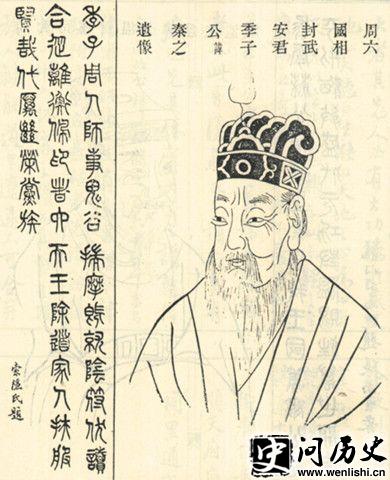 周六
國相
封武
安君
季子
公諱
秦之
遺像
季子周人師事鬼谷揣摩既就陰符伏讀
合從離衡佩印者六天王除道家人扶服
賢哉代厲繼榮黨族
索隱氏題
史问历史
www.wenlishi.cn